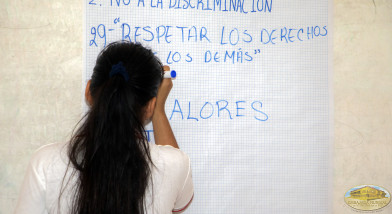 2. NO A LA DISCRIMINACIÓN
29-"RESPETAR LOS DERECHOS
LOS DEMÁS"
ALORES